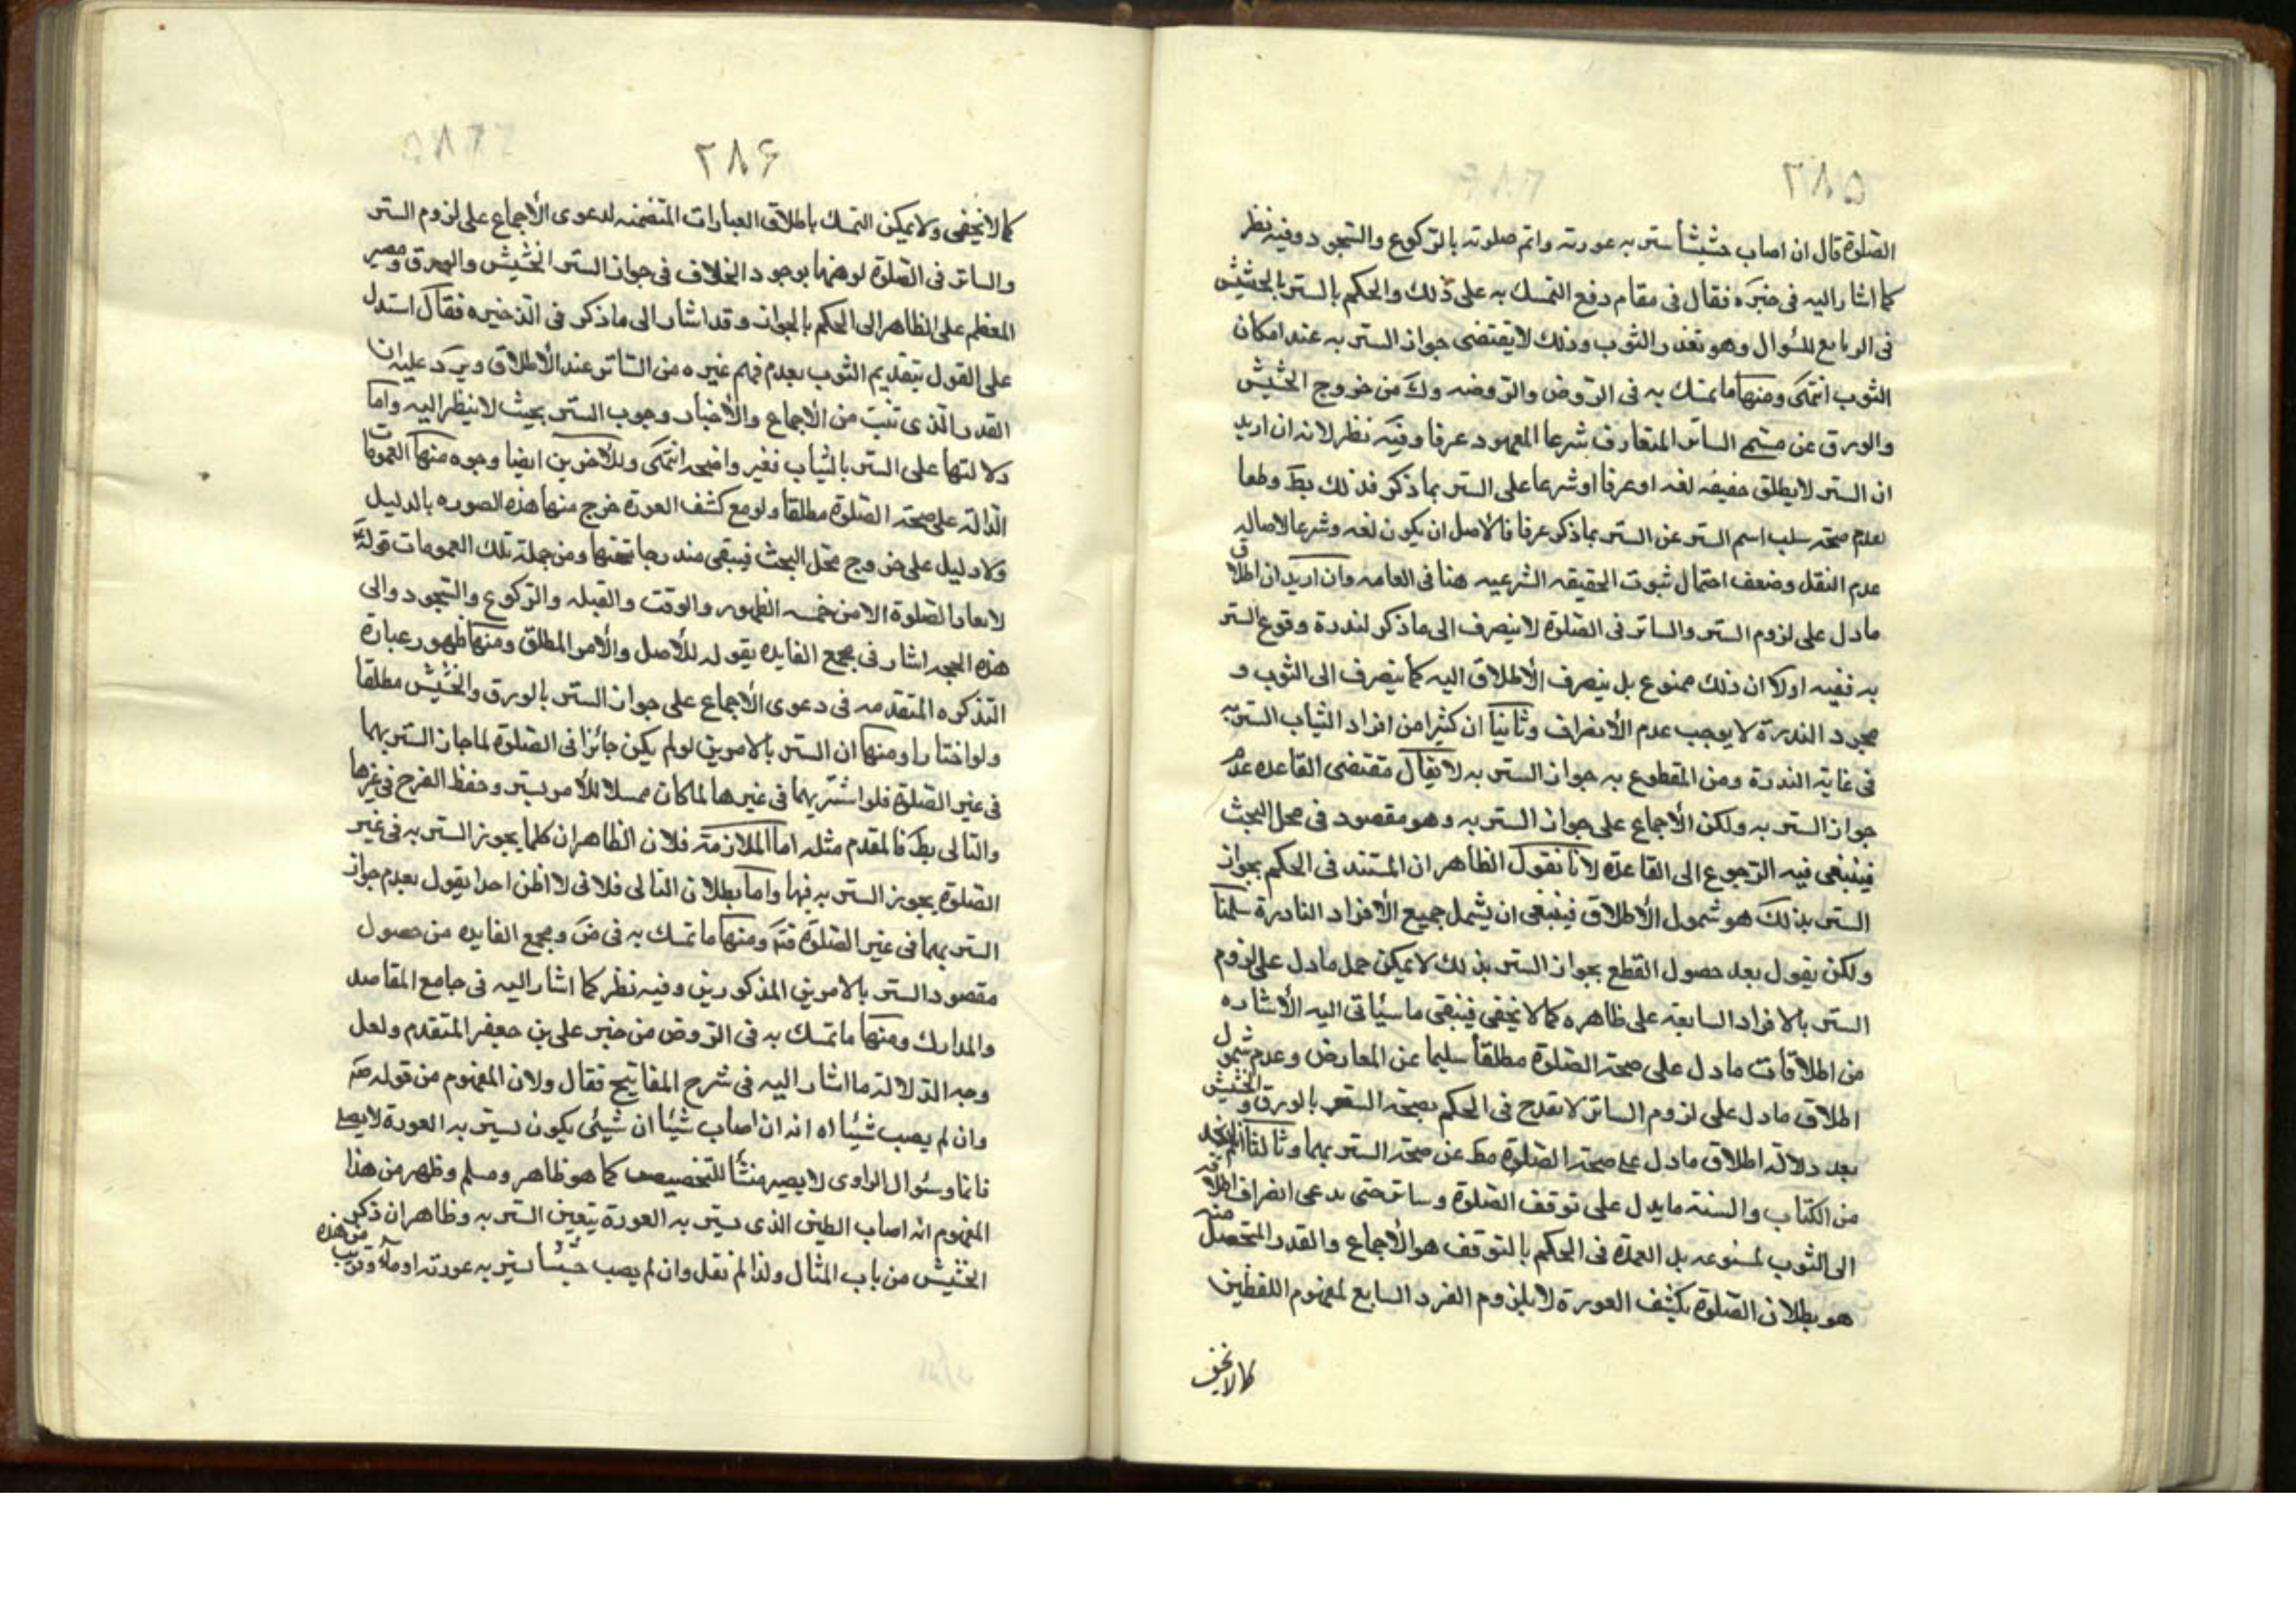 ٢٨٥
الصلوة قال ان اصاب حشيشا ستر به عورته واتم صلوته بالركوع والسجود وفيه نظر
كما اشار اليه في خبره فقال في مقام دفع التمسك به على ذلك والحكم بالستر بالحشيش
في الرابع للسؤال وهو تعذر الثوب وذلك لا يقتضى جواز الستر به عند امكان
الثوب انتهى ومنها ما تمسك به في الروض والروضه وك من خروج الحشيش
والورق عن مسمى الساتر المتعارف شرعا المعهود عرفا وفيه نظر لانه ان اريد
ان الستر لا يطلق حقيقه لغه او عرفا او شرعا على الستر بما ذكر فذلك بط وطعا
لعدم صحة سلب اسم الستر عن الستر بما ذكر عرفا فالاصل ان يكون لغه وشرعا لاصاله
عدم النقل وضعف احتمال ثبوت الحقيقه الشرعيه هنا في العامه وان اريد ان اطلاق
ما دل على لزوم الستر والساتر في الصلوة لا ينصرف الى ما ذكر لندرة وقوع الستر
به ففيه اولا ان ذلك ممنوع بل ينصرف الاطلاق اليه كما ينصرف الى الثوب و
مجرد الندرة لا يوجب عدم الانصراف وثانيا ان كثيرا من افراد الثياب الستر به
في غاية الندرة ومن المقطوع به جواز الستر به لا يقال مقتضى القاعده عدم
جواز الستر به ولكن الاجماع على جواز الستر به وهو مقصود في محل البحث
فينبغى فيه الرجوع الى القاعدة لانا نقول الظاهر ان المستند في الحكم بجواز
الستر بذلك هو شمول الاطلاق فينبغى ان يشمل جميع الافراد النادرة سلمنا
ولكن نقول بعد حصول القطع بجواز الستر بذلك لا يمكن حمل ما دل على لزوم
الستر بالافراد السابعة على ظاهره كما لا يخفى فيبقى ما سياتى اليه الاشاره
من اطلاقات ما دل على صحة الصلوة مطلقا سليما عن المعارض وعدم شمول
اطلاق ما دل على لزوم الساتر لا يقدح في الحكم بصحة الستر بالورق والحشيش
بعد دلالة اطلاق ما دل على صحة الصلوة مط عن صحة الستر بهما وثالثا انا لم نجد
من الكتاب والسنة ما يدل على توقف الصلوة وساتر حتى يدعى انصراف اطلاقه
الى الثوب لمنوعه بل العمدة في الحكم بالتوقف هو الاجماع والقدر المتحصل منه
هو بطلان الصلوة بكشف العورة لا بلزوم الفرد السابع لمفهوم اللفظين
كما لا يخفى
٢٨۶
كما لا يخفى ولا يمكن التمسك باطلاق العبارات المتضمنه لدعوى الاجماع على لزوم الستر
والساتر في الصلوة لوهنها بوجود الخلاف في جواز الستر الحشيش والورق ومصير
المعظم على الظاهر الى الحكم بالجواز وقد اشار الى ما ذكر في الذخيره فقال استدل
على القول بتقديم الثوب بعدم فهم غيره من الساتر عند الاطلاق ويرد عليه ان
القدر الذى تثبت من الاجماع والاخبار وجوب الستر بحيث لا ينظر اليه واما
دلالتها على الستر بالثياب فغير واضحه انتهى وللاخرين ايضا وجوه منها العمومات
الدالة على صحة الصلوة مطلقا ولو مع كشف العورة خرج منها هذه الصوره بالدليل
ولا دليل على خروج محل البحث فيبقى مندرجا تحتها ومن جملة تلك العمومات قوله
لا تعاد الصلوة الا من خمسه الطهور والوقت والقبله والركوع والسجود والى
هذه الحجه اشار في مجمع الفايده بقوله للاصل والامر المطلق ومنها ظهور عبارة
التذكره المتقدمه في دعوى الاجماع على جواز الستر بالورق والحشيش مطلقا
ولو اختارا ومنها ان الستر بالامرين لو لم يكن جائزا في الصلوة لما جاز الستر بهما
في غير الصلوة فلو استتر بهما في غيرها لما كان ممسلا للامر بستر وحفظ الفرج في غيرها
والتالى بط فالمقدم مثله اما الملازمة فلان الظاهر ان كلما يجوز الستر به في غير
الصلوة يجوز الستر به فيها واما بطلان التالى فلانى لا اظن احدا يقول بعدم جواز
الستر بهما في غير الصلوة فتم ومنها ما تمسك به في ض ومجمع الفايده من حصول
مقصود الستر بالامرين المذكورين وفيه نظر كما اشار اليه في جامع المقاصد
والمدارك ومنها ما تمسك به في الروض من خبر على بن جعفر المتقدم ولعل
وجه الدلالة ما اشار اليه في شرح المفاتيح فقال ولان المفهوم من قوله
وان لم يصب شيئا اه انه ان اصاب شيئا ان شيئى يكون ليستر به العورة لا يصلى
فانما وسئوال الراوى لا يصير منشأ للتخصيص كما هو ظاهر ومسلم وظهر من هذا
المفهوم انه اصاب الطين الذى يستر به العورة يتعين الستر به وظاهر ان ذكر
الحشيش من باب المثال ولذا لم نقل وان لم يصب حشيشا ليستر به عورته اومأ وقريب من هذه